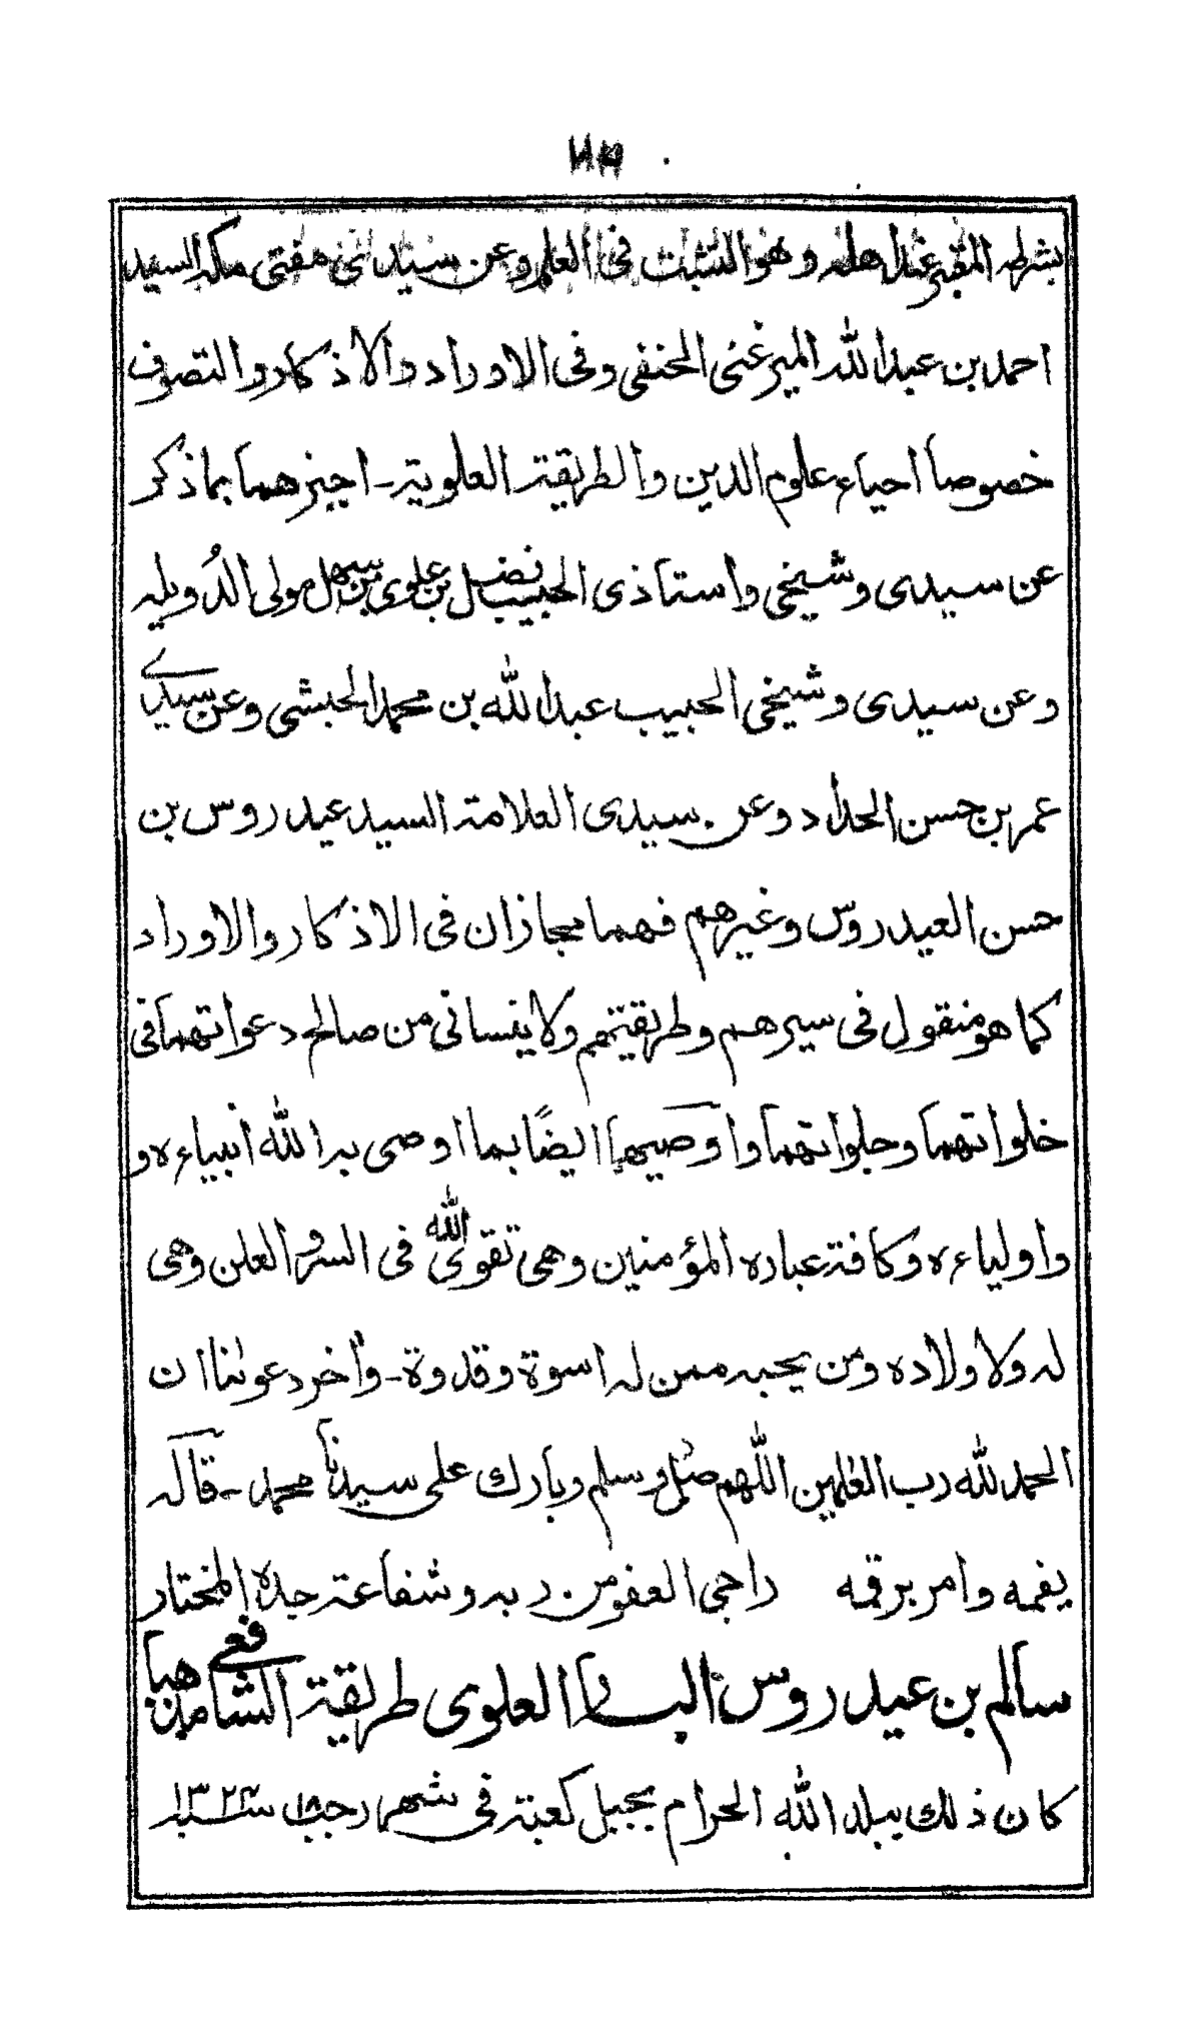 بشرطه المعتبر عند اهله وهو التثبت فى العلم وعن سيدانى مفتى مكة السيد
احمد بن عبدالله الميرغنى الحنفى وفى الاوراد والاذكار والتصوف
خصوصا احياء علوم الدين والطريقة العلوية - اجيزهما بما ذكر
عن سيدى وشيخى واستاذى الحبيب فضل بن علوى بن سهل مولى الدُّويله
وعن سيدى وشيخى الحبيب عبدالله بن محمد الحبشى وعن سيدي
عمر بن حسن الحداد وعن سيدى العلامة السيد عيدروس بن
حسن العيدروس وغيرهم فهما مجازان فى الاذكار والاوراد
كما هو منقول فى سيرهم وطريقتهم ولا ينسانى من صالح دعواتهما فى
خلواتهما وجلواتهما واوصيهما ايضًا بما اوصى به الله انبياءه و
واولياءه وكافة عباده المؤمنين وهى تقوى الله فى السر والعلن وهى
له ولاولاده ومن يحبه ممن له اسوة وقدوة - وآخر دعوٰنا ان
الحمد لله رب العٰلمين اللهم صل وسلم وبارك على سيدنا محمد - قاله
بفمه وامر برقمه راجى العفو من ربه وشفاعة جده المختار
سالم بن عيدروس البار العلوى طريقة الشافعى مذهبا
كان ذلك ببلد الله الحرام بجبل كعبة فى شهر رجب سنة ١٣٢٤